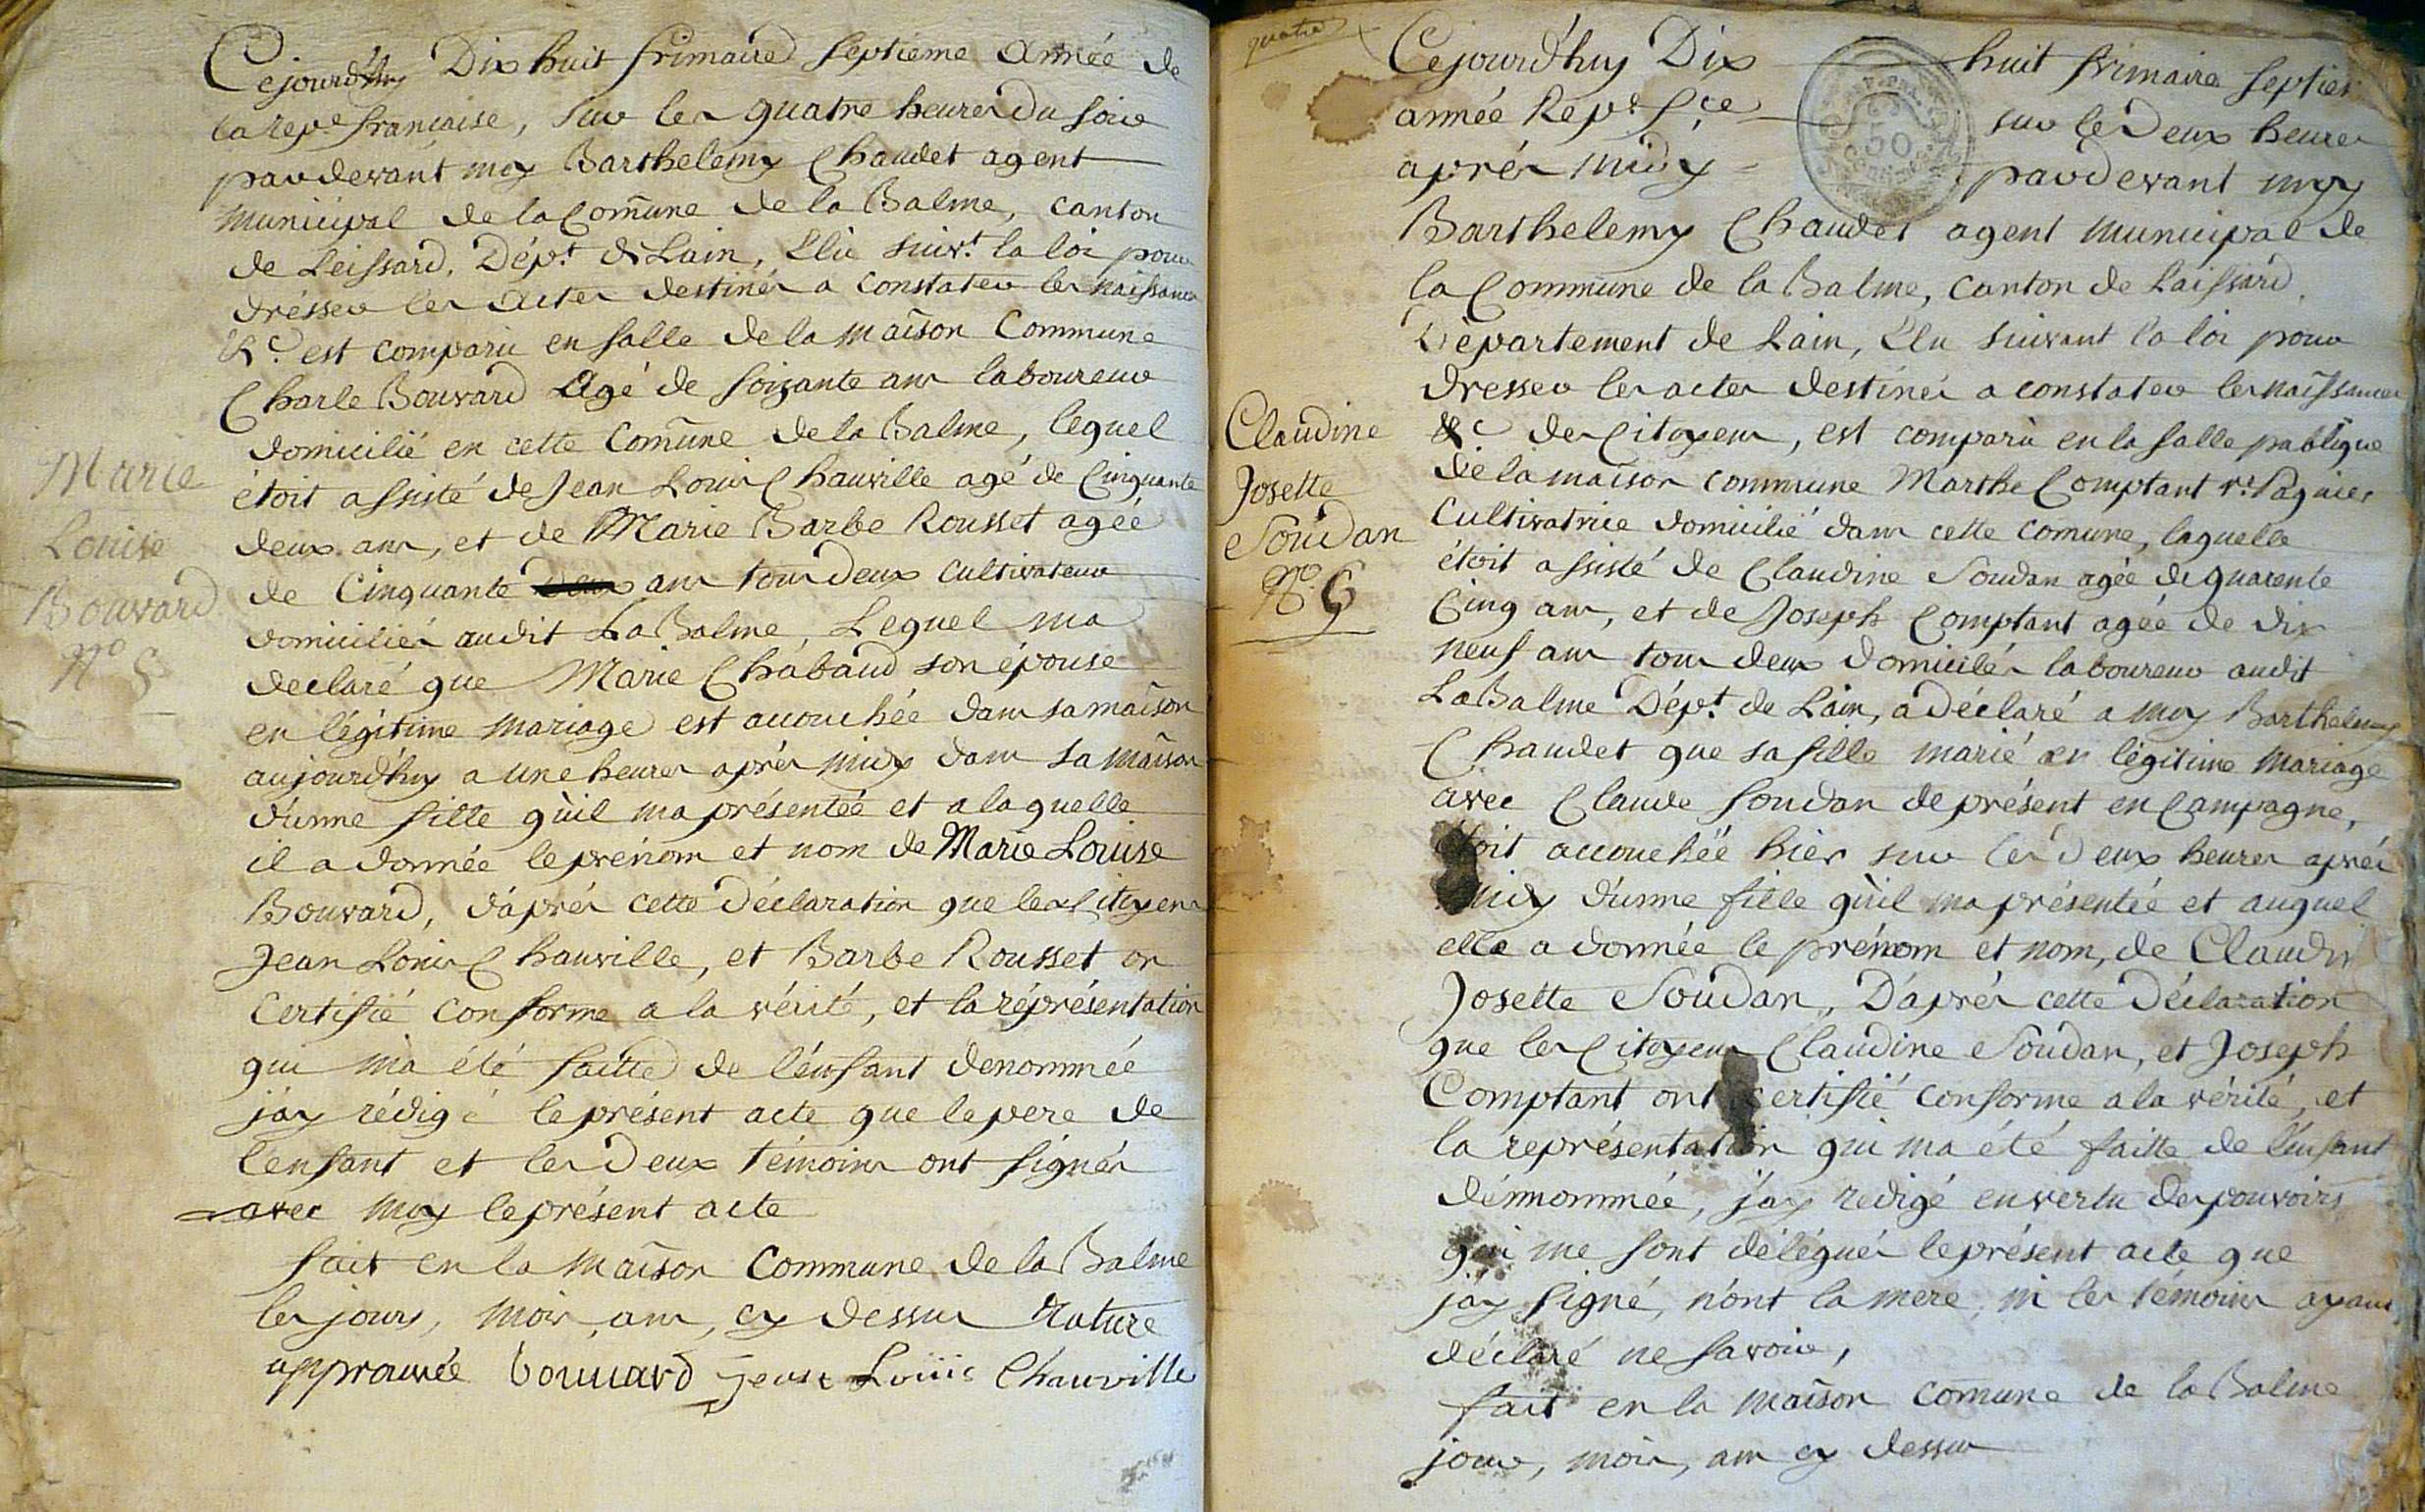 Cejourd'huy Dix huit frimaire septieme année de
la repe francaise, sur les quatre heures du soir
pardevant moy Barthelemy Chaudet agent
municipal de la Comune de la Balme, canton
de Leissard, Dépt de Lain, Elu suivt la loi pour
drésser les actes destinés a constater les naissances
&c. est comparu en salle de la maison Commune
Charle Bouvard Agé de soixante ans laboureur
domicilié en cette Comune de la Balme, lequel
étoit assisté de Jean Louis Chauville agé de Cinquante
deux ans, et de Marie Barbe Rousset agée
de Cinquante ans tous deux cultivateur
domiciliés audit La Balme, Lequel ma
declaré que Marie Chabaud son épouse
en légitime mariage est accouchée dans sa maison
aujourd'huy a une heures après midy dans sa maison
d'unne fille qu'il ma présentée et a laquelle
il a donnée le prénom et nom de Marie Louise
Bouvard, d'aprés cette déclaration que les Citoyens
Jean Louis Chauville, et Barbe Rousset on
Certifié conforme a la vérité, et la réprésentation
qui m'a été faitte de l'énfant denommée
j'ay rédigé le présent acte que le pere de
l'enfant et les deux témoins ont signés
avec moy le présent acte
fait en la maison Commune de la Balme
les jours, mois, ans, cy dessus Rature
approuvée bouuard jean Louis Chauville
Marie
Louise
Bouvard
No 5
quatre
Cejourd'huy Dix huit frimaire septiem
année Rep.e fce sur les Deux heures
aprés midy pardevant moy
50
Centimes
Barthelemy Chaudet agent municipal de
la Commune de la Balme, canton de Laissard,
Département de Lain, Elu suivant la loi pour
dresser les actes destinés a constater les naissances
&c des Citoyens, est comparu en la salle publique
de la maison commune Marthe Comptant ve Pagnier
Cultivatrice domicilié dans cette comune, laquelle
étoit assisté de Claudine Soudan agée de quarente
Cinq ans, et de Joseph Comptant agée de dix
neuf ans tous deux domiciliés laboureur audit
La Balme Dépt de Lain, a déclaré a moy Barthelemy
Chaudet que sa fille marié en légitime mariage
avec Claude Soudan de présent en Campagne,
étoit accouchéé hier sur les deux heures aprés
midy d'unne fille qu'il ma présentée et auquel
elle a donnée le prénom et nom, de Claudin
Josette Soudan, D'aprés cette Déclaration
que les Citoyens Claudine Soudan, et Joseph
Comptant ont certifié conforme a la vérité, et
la représentation qui ma été faitte de l'énfant
dénnommée, j'ay redigé en vertu des pouvoirs
qui me sont délégués le présent acte que
j'ay signé, n'ont la mere, ni les témoins ayant
déclaré ne savoir,
fait en la maison comune de la Balme
jour, mois, an cy dessus
Claudine
Josette
Soudan
No 6